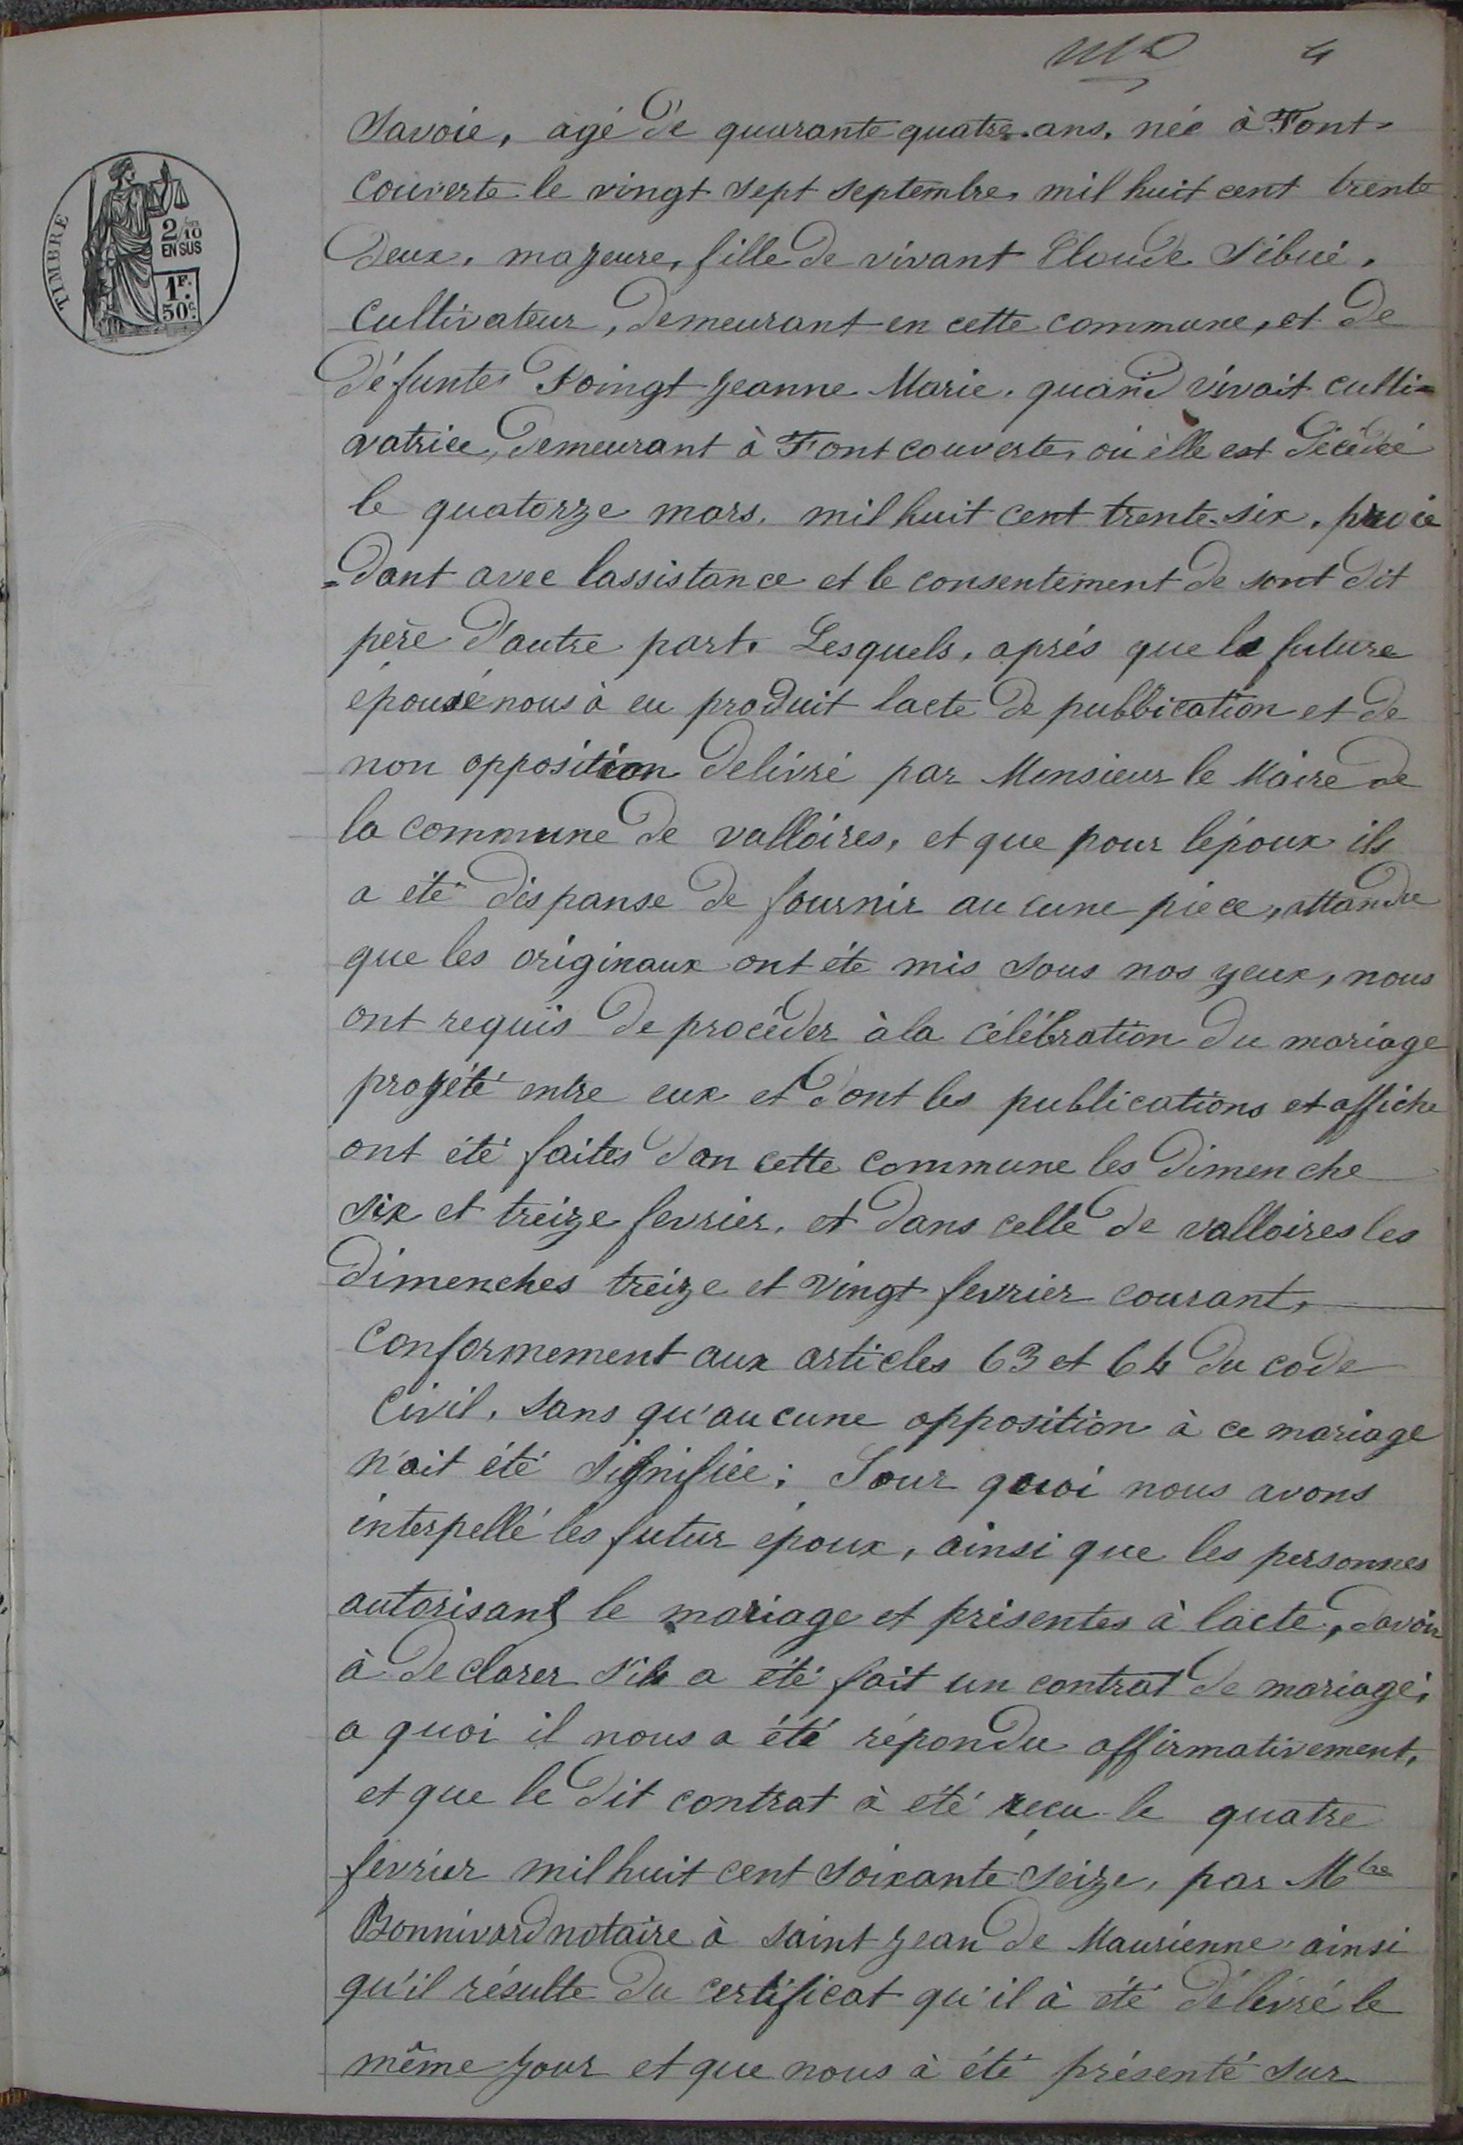 4
TIMBRE
2/10
EN SUS
1F.
50c.
Savoie, agé de quarante quatre ans, née à Font-
couverte le vingt sept septembre, mil huit cent trente
deux, mazeure, fille de vivant Claude Sibué,
cultivateur, demeurant en cette commune, et de
défunte Foingt Jeanne Marie, quand vivait culti=
vatrice, demeurant à Fontcouverte, où elle est décédée
le quatorze mars, mil huit cent trente-six, procé
=dant avec lassistance et le consentement de sont dit
père d'autre part. Lesquels, aprés que la future
épouse nous à eu produit lacte de publication et de
non opposition delivré par Monsieur le Maire de
la commune de valloires, et que pour lépoux ils
a été dispanse de fournir aucune piece, attandu
que les originaux ont éte mis sous nos yeux, nous
ont requis de procéder à la célébration du mariage
projété entre eux et dont les publications et affiche
ont été faites dan cette commune les dimenche
six et treize fevrier, et dans celle de valloires les
dimenches treize et vingt fevrier courant,
conformement aux articles 63 et 64 du code
civil, sans qu'aucune opposition à ce mariage
n'ait été signifiée; Sour quoi nous avons
interpellé les futur époux, ainsi que les personnes
autorisant le mariage et présentes à lacte, davoir
à declarer s'ils a été fait un contrat de mariage;
a quoi il nous a été répondu affirmativement,
et que le dit contrat à été reçu le quatre
fevrier mil huit cent soixante seize, par Mtre
Bonnivard notaire à saint Jean de Maurienne ainsi
qu'il résulte du certificat qu'il à été délivré le
même jour et que nous à été présenté sur